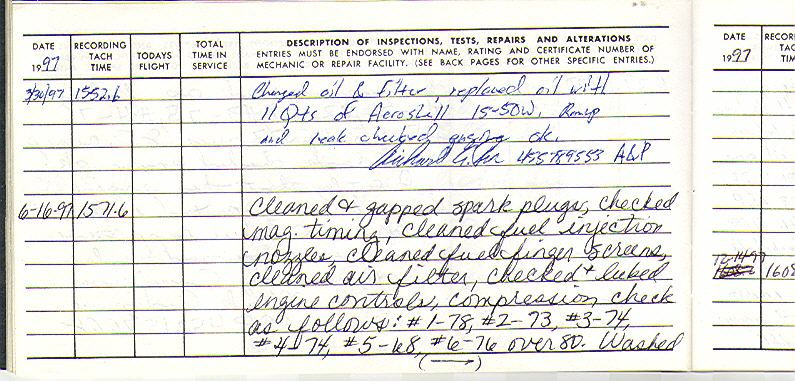 DATE
1997
RECORDING
TACH
TIME
TODAYS
FLIGHT
TOTAL
TIME IN
SERVICE
DESCRIPTION OF INSPECTIONS, TESTS, REPAIRS AND ALTERATIONS
ENTRIES MUST BE ENDORSED WITH NAME, RATING AND CERTIFICATE NUMBER OF
MECHANIC OR REPAIR FACILITY. (SEE BACK PAGES FOR OTHER SPECIFIC ENTRIES.)
3/30/97 1552.6 Changed oil & filter, replaced oil with
11 Qts of Aeroshell 15-50W, Runup
and leak checked engine ok.
Richard 455789553 A&P
6-16-97 1571.6 Cleaned & gapped spark plugs, checked
mag. timing, cleaned fuel injection
nozzles, cleaned fuel finger screens,
cleaned air filter, checked & lubed
engine controls, compression check
as follows: #1-78, #2-73, #3-74,
#4-74, #5-68, #6-76 over 80. Washed
(→)
DATE
1997
RECOR
TAC
TIM
12-14-97
1608